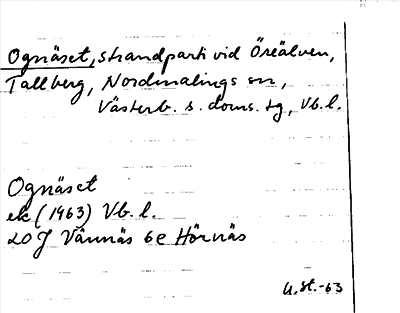 Ognäset, strandparti vid Öreälven,
Tallberg, Nordmalings sn,
Västerb. s. doms. tg, Vb. l.
Ognäset
ek (1963) Vb. l.
20J Vännäs 6e Hörnäs
U.St.-63